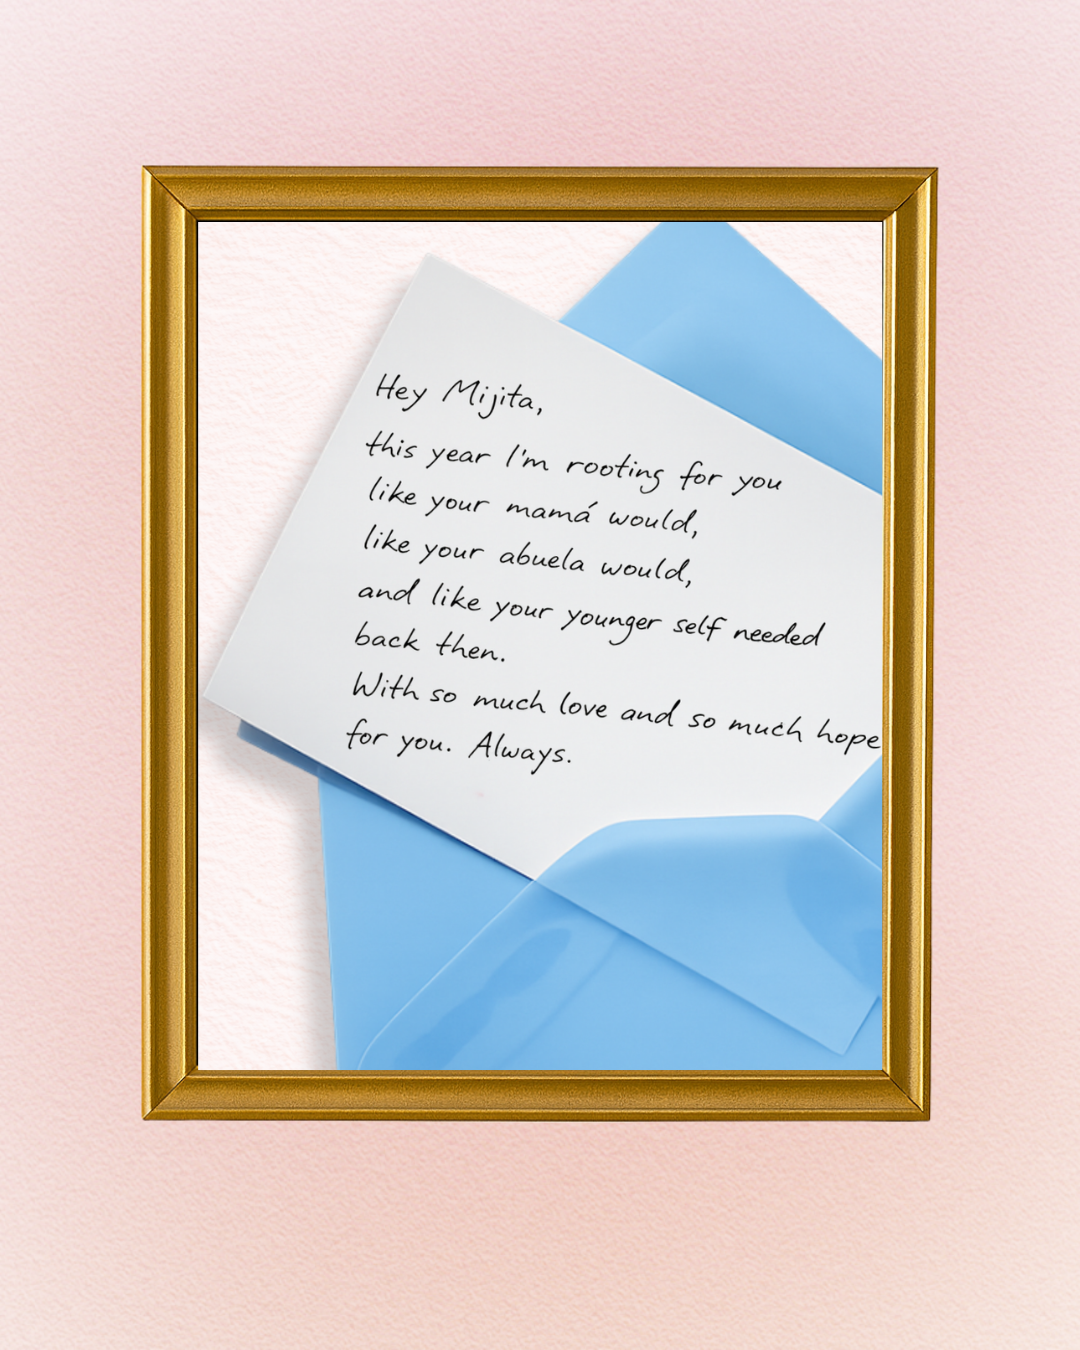 Hey Mijita,
this year I'm rooting for you
like your mamá would,
like your abuela would,
and like your younger self needed
back then.
With so much love and so much hope
for you. Always.